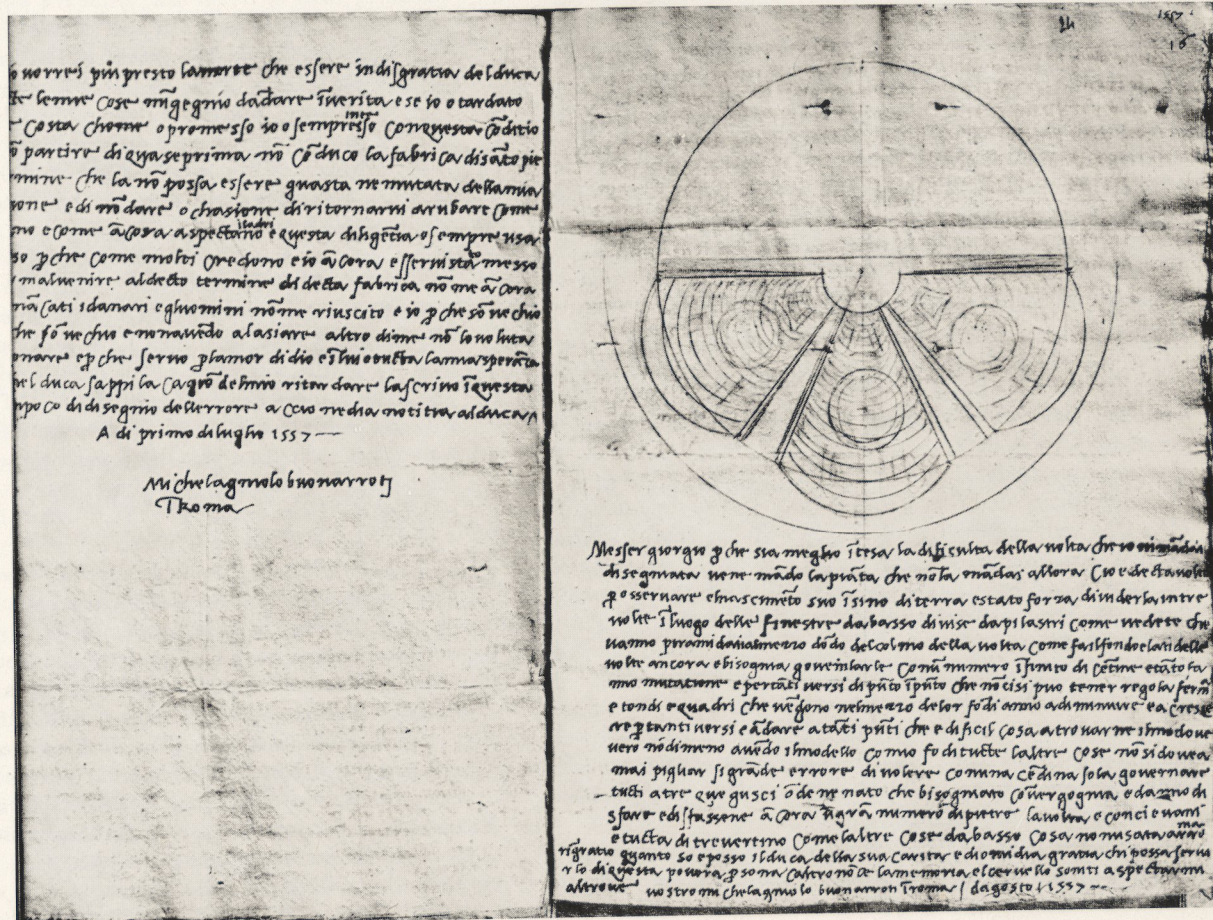 o vorrei piu presto lamorte che essere indisgratia delduca
te lemie cose mĩgegnio dãdare ĩverita e se io o tardato
Costa chome o promesso io o sempre ĩteso Conquesta Cõditio
partire di qua seprima nõ Cõduco la fabrica di sãto pie
mine che la nõ possa essere guasta ne mutata della mia
ione e di nõ dare ochasione di ritornarvi arubare Come
no e come ãcora aspectano iladri e questa diligẽtia o sempre usa
so p che come molti Credono e io ãcora esservi stato messo
malvenire aldecto termine di decta fabrica nõ me ãcora
mãcati idanari e gliuomini nõme riuscito e io p che sõ vechio
he sõ vechio e nonavẽdo alasiare altro dime nõ lo voluta
onare e p che servo p lamor di dio e ĩ lui o tucta lamia sperãza
el duca sappi la Cagiõ delmio ritardare la scrivo ĩquesta
mpoco di disegnio dellerrore a Ccio ne dia notitia alduca
A di primo di luglio 1557
Michelagniolo buonarroti
ĩRoma
1557
16
Messer giorgio p che sia meglio ĩtesa la dificulta della volta che io vi mãdai
disegniata vene mãdo la piãta che nõ la mãdai allora Cioe decta volta
p osservare el nascimẽto suo ĩsino di terra e stato forza dividerla in tre
volte ĩ luogo delle finestre dabasso divise dapilastri come vedete che
vanno piramidati almezzo dõdo del colmo della volta come fa il fondo e lati delle
volte ancora e bisognia governarle Conũ numero ĩfinito di cẽtine e tãto fa
nno mutatione e pertãti versi di pũto ĩpũto che nõ cisi puo tener regola ferma
e tondi e quadri che vẽgono nelmezzo de lor fõdi anno adiminuire e a cresce
re p tanti versi e ãdare a tãti pũti che e dificil cosa a trovarne ilmodo ve
vero nõdimeno avẽdo ilmodello comio fo di tucte laltre cose nõ si dovea
mai pigliar si grãde errore di volere conuna cẽtina sola governare
tucti a tre que gusci õde ne nato che bisogniato cõ vergognia e danno di
sfare e disfassene ãcora ũ grã numero di pietre la volta e conci e vani
e tucta di trevertino Come laltre cose dabasso cosa nonusata aroma
rĩgratio quanto so e posso il duca della sua Carita e dio midia gratia chi possa servi
rlo di questa povera p sona caltro nõ ce la memoria el cervello soniti aspectarmi
altrove vostro michelagniolo buonarroti ĩroma dagosto 1557